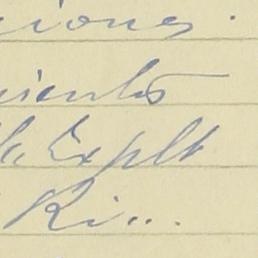 iones.
mientos
la Explt
Ri...